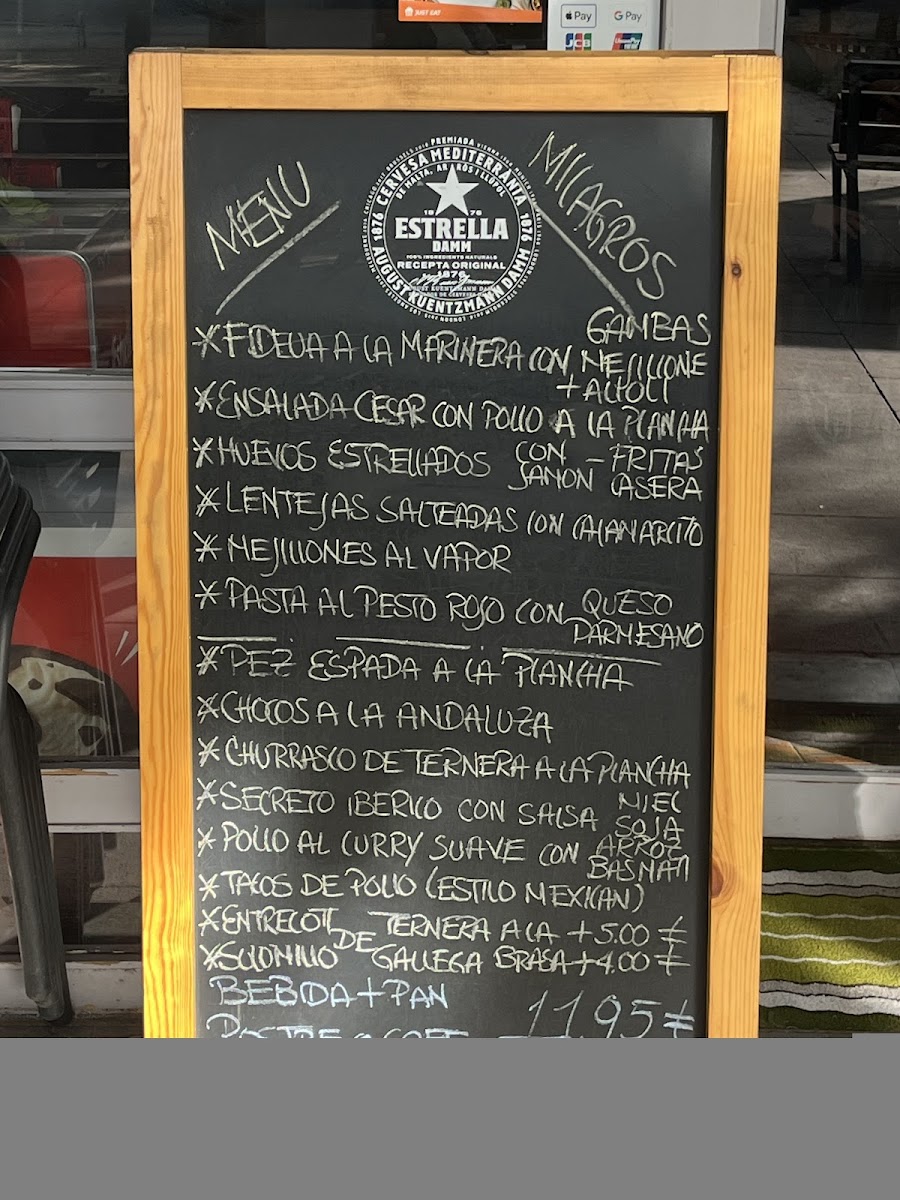 JUST EAT
Pay G Pay
JCB UnionPay
MENU MILAGROS
PREMIADA
CERVESA MEDITERRÀNIA
DE MALTA, ARRÒS I LLÚPOL
1876 1876
1876
ESTRELLA
DAMM
100% INGREDIENTS NATURALS
RECEPTA ORIGINAL
1876
AUGUST KUENTZMANN DAMM
* FIDEUA A LA MARINERA CON GAMBAS
MEJILLONE
+ ALIOLI
* ENSALADA CESAR CON POLLO A LA PLANCHA
* HUEVOS ESTRELLADOS CON - FRITAS
JAMON CASERA
* LENTEJAS SALTEADAS CON CALAMARCITO
* MEJILLONES AL VAPOR
* PASTA AL PESTO ROJO CON QUESO
PARMESANO
* PEZ ESPADA A LA PLANCHA
* CHOCOS A LA ANDALUZA
* CHURRASCO DE TERNERA A LA PLANCHA
* SECRETO IBERICO CON SALSA MIEL
SOJA
* POLLO AL CURRY SUAVE CON ARROZ
BASMATI
* TACOS DE POLLO (ESTILO MEXICAN)
* ENTRECOTE DE TERNERA A LA +5.00 €
GALLEGA BRASA
* +4.00 €
BEBIDA + PAN 11,95 €